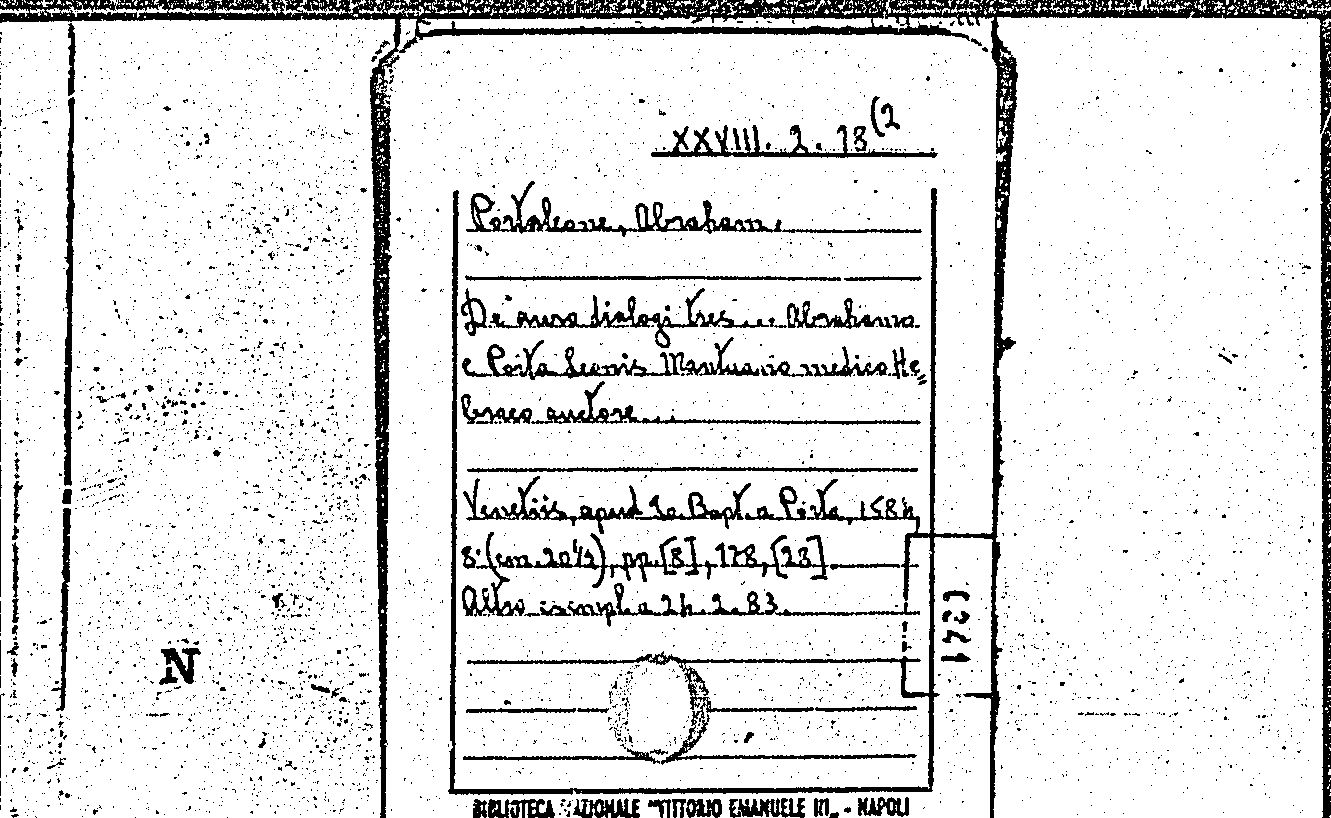 XXVIII. 2. 18(2
Portaleone, Abraham.
De auro dialogi tres... Abrahamo
e Porta Leonis Mantuano medico He=
braeo auctore...
Venetiis, apud Io. Bapt. a Porta, 1584,
8°(cm. 20½), pp. [8], 178, [28].
Altro esempl. a 24. 2. 83.
N
BIBLIOTECA NAZIONALE "VITTORIO EMANUELE III" - NAPOLI